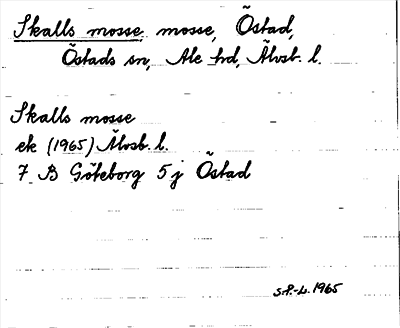 Skalls mosse, mosse, Östad,
Östads sn, Ale hd, Älvsb. l.
Skalls mosse
ek (1965) Älvsb. l.
7 B Göteborg 5 j Östad
S.P.-L. 1965